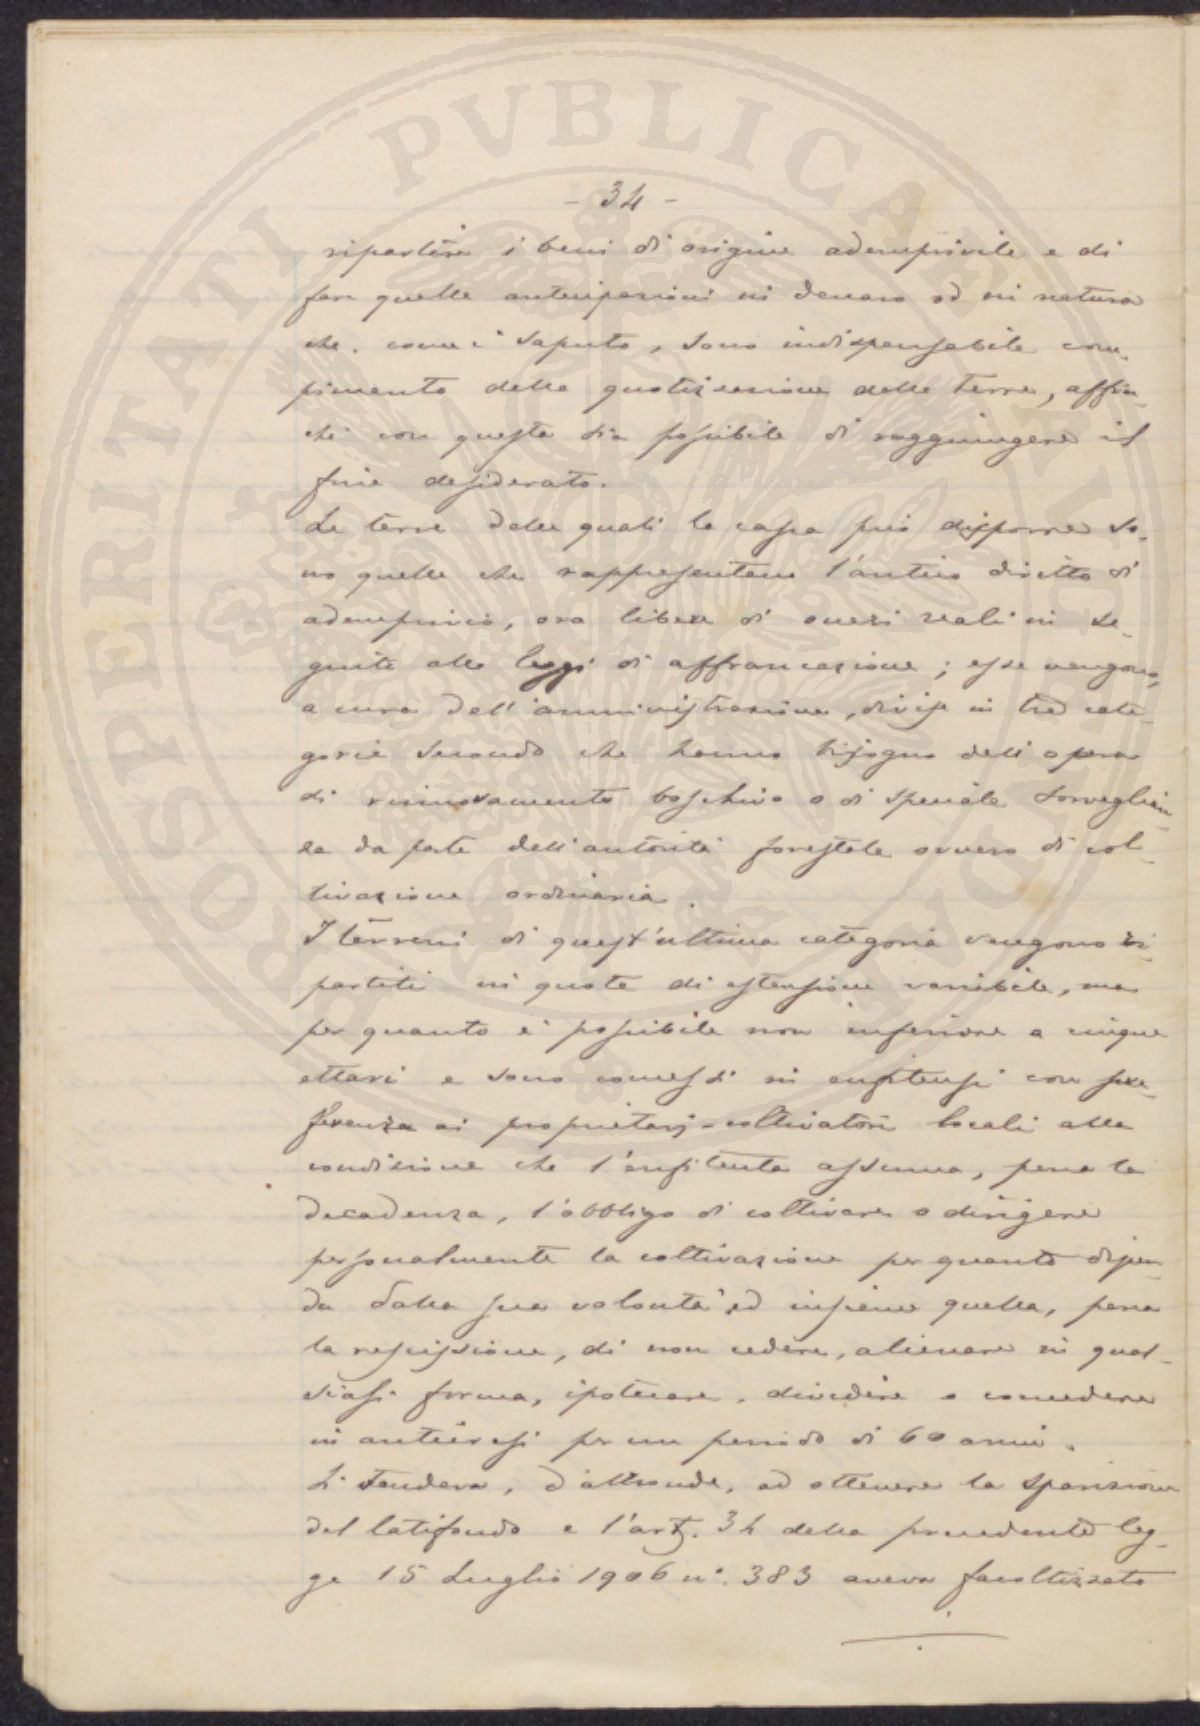 PROSPERITATI PVBLICAE AVGENDAE
- 34 -
ripartire i beni di origine ademprivile e di
fare quelle anticipazioni in denaro od in natura
che, come è saputo, sono indispensabile com-
pimento della quotizzazione delle terre, affin-
chè con questa sia possibile di raggiungere il
fine desiderato.
Le terre delle quali la cassa può disporre so-
no quelle che rappresentano l'antico diritto di
ademprivio, ora libere di oneri reali in se-
guito alle leggi di affrancazione; esse vengono,
a cura dell'amministrazione, divise in tre cate-
gorie secondo che hanno bisogno dell'opera
di rinnovamento boschivo o di speciale sorveglian-
za da parte dell'autorità forestale ovvero di col-
tivazione ordinaria.
I terreni di quest'ultima categoria vengono ri-
partiti in quote di estensione variabile, ma
per quanto è possibile non inferiore a cinque
ettari e sono concessi in enfiteusi con pre-
ferenza ai proprietarj-coltivatori locali alla
condizione che l'enfiteuta assuma, pena la
decadenza, l'obbligo di coltivare o dirigere
personalmente la coltivazione per quanto dipen-
da dalla sua volontà, ed insieme quella, pena
la rescissione, di non cedere, alienare in qual-
siasi forma, ipotecare, dividere o concedere
in anticresi per un periodo di 60 anni.
Si tendeva, d'altronde, ad ottenere la sparizione
del latifondo e l'art. 34 della precedente leg-
ge 15 Luglio 1906 n°. 383 aveva facoltizzato